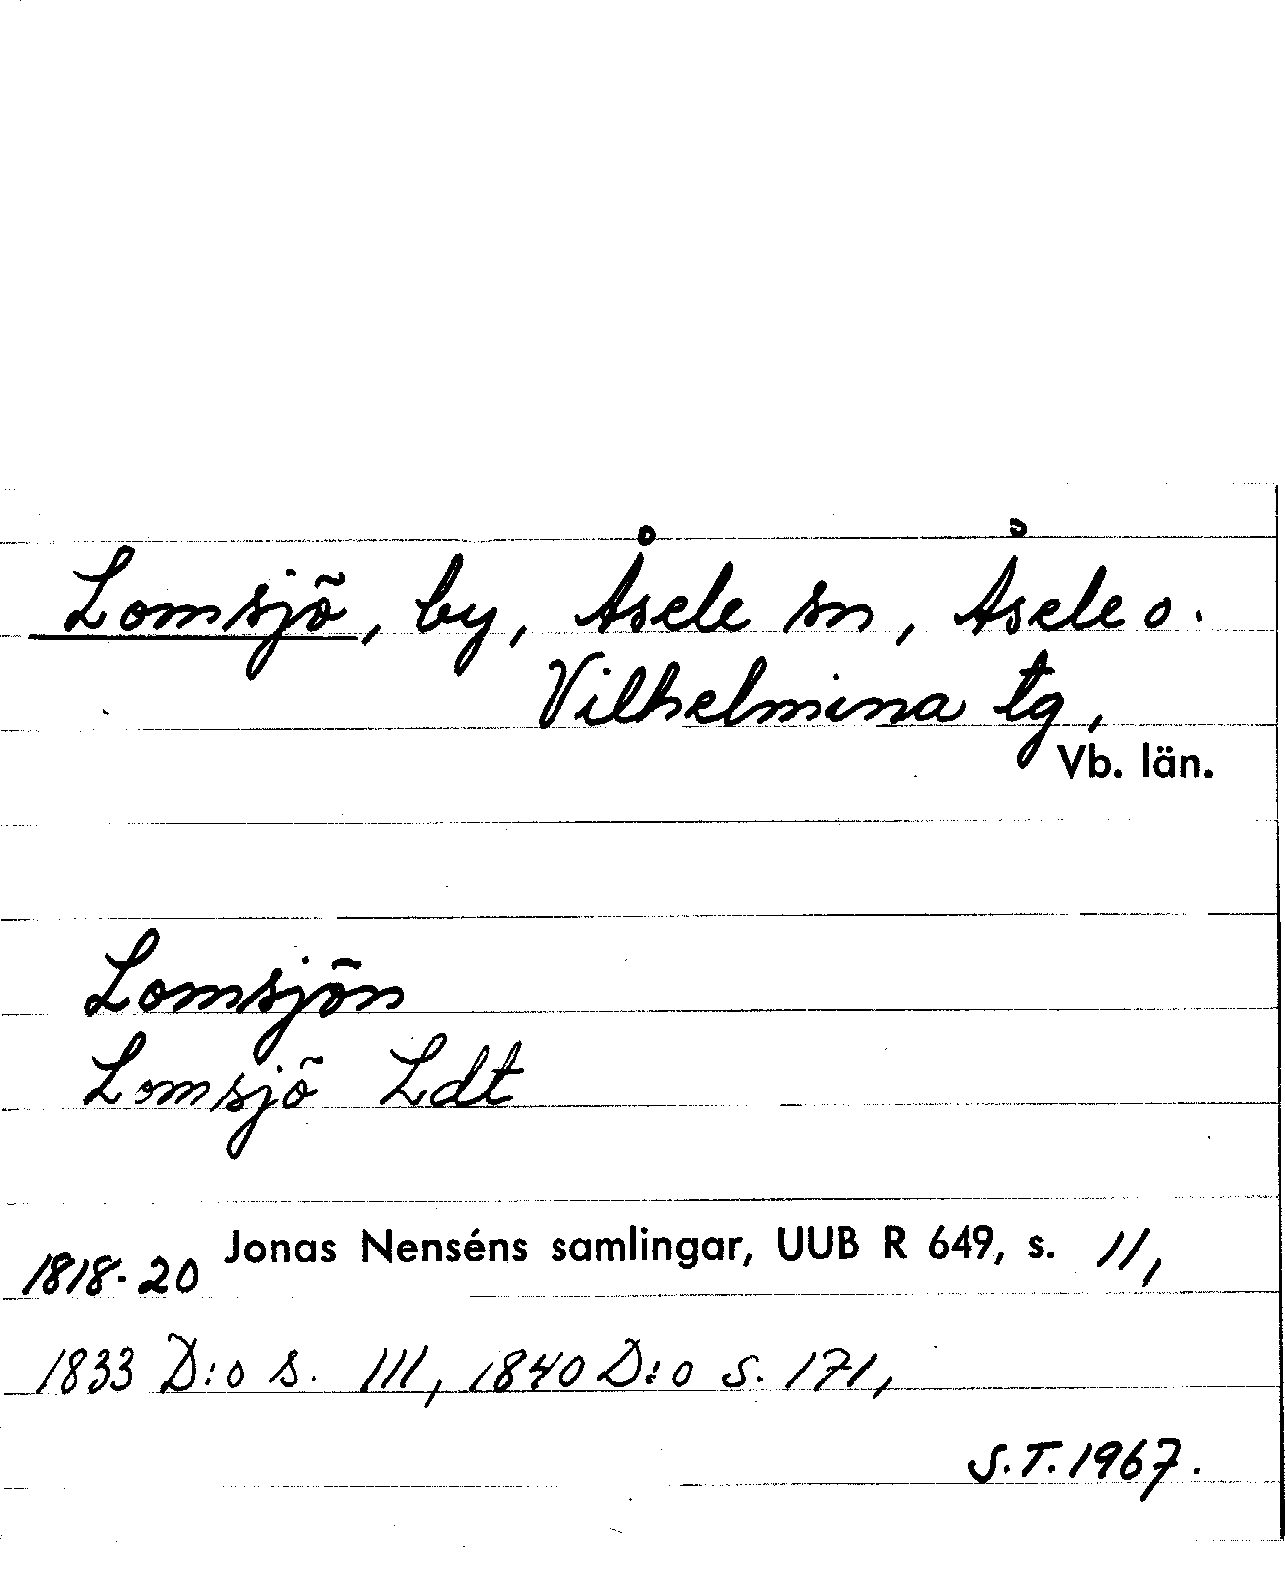 Lomsjö, by, Åsele sn, Åsele o.
Vilhelmina tg,
Vb. län.
Lomsjön
Lomsjö Ldt
1818-20 Jonas Nenséns samlingar, UUB R 649, s. 11,
1833 D:o s. 111, 1840 D:o s. 171,
S.T. 1967.